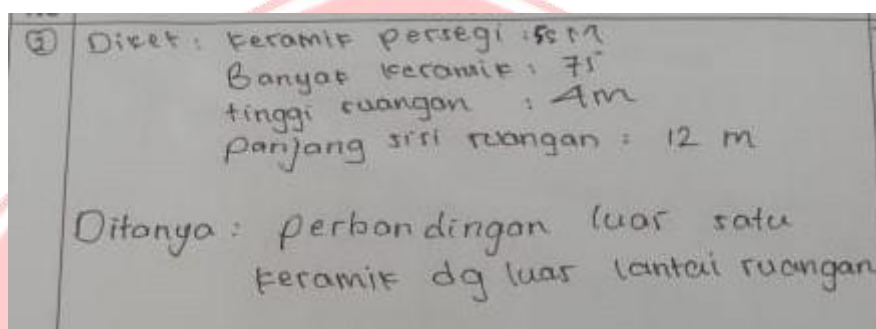 ② Diket : keramik persegi :
Banyak keramik : 75
tinggi ruangan : 4m
panjang sisi ruangan : 12 m
Ditanya : perbandingan luas satu
keramik dg luas lantai ruangan